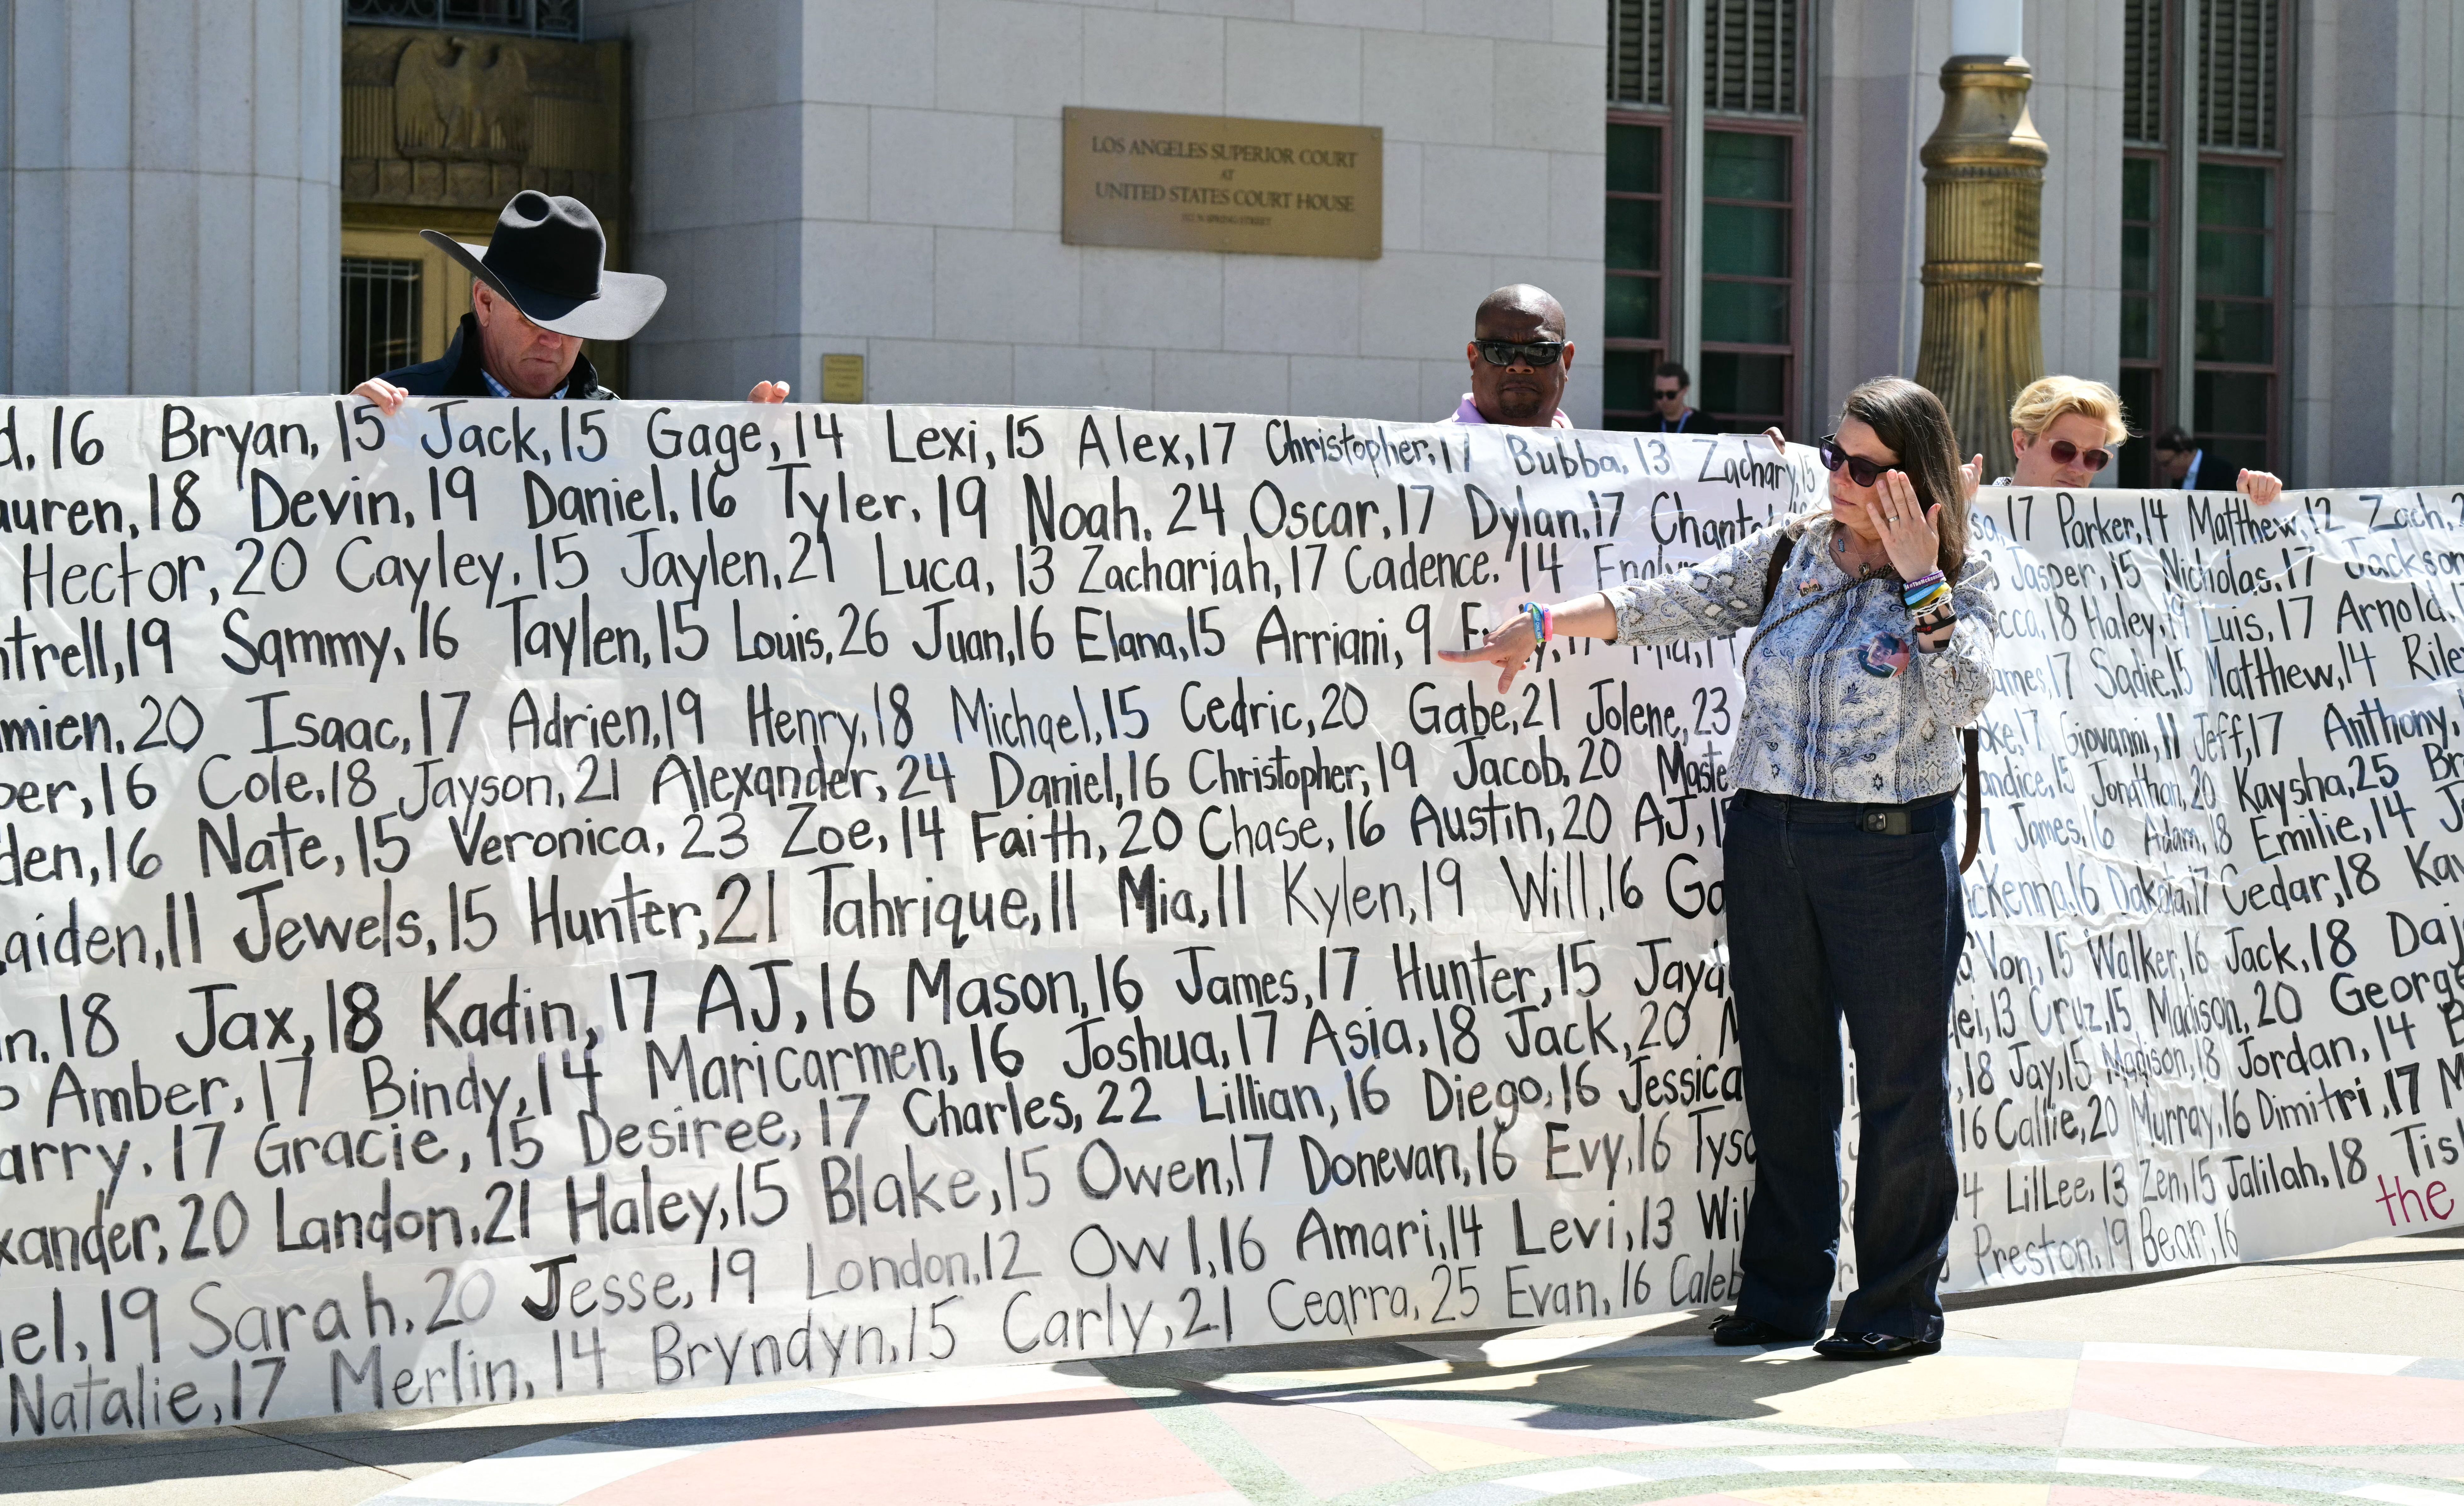 LOS ANGELES SUPERIOR COURT
AT
UNITED STATES COURT HOUSE
312 N SPRING STREET
16 Bryan, 15 Jack, 15 Gage, 14 Lexi, 15 Alex, 17 Christopher, 17 Bubba, 13 Zachary, 15
18 Devin, 19 Daniel, 16 Tyler, 19 Noah, 24 Oscar, 17 Dylan, 17 17 Parker, 14 Matthew, 12 Zach,
Hector, 20 Cayley, 15 Jaylen, 21 Luca, 13 Zachariah, 17 Cadence, 14 Jasper, 15 Nicholas, 17 Jackson
19 Sammy, 16 Taylen, 15 Louis, 26 Juan, 16 Elana, 15 Arriani, 9 18 Haley, 19 Luis, 17 Arnold,
20 Isaac, 17 Adrien, 19 Henry, 18 Michael, 15 Cedric, 20 Gabe, 21 Jolene, 23 17 Sadie, 15 Matthew, 14
16 Cole, 18 Jayson, 21 Alexander, 24 Daniel, 16 Christopher, 19 Jacob, 20 17 Giovanni, 11 Jeff, 17 Anthony,
16 Nate, 15 Veronica, 23 Zoe, 14 Faith, 20 Chase, 16 Austin, 20 AJ, 15 Jonathan, 20 Kaysha, 25
11 Jewels, 15 Hunter, 21 Tahrique, 11 Mia, 11 Kylen, 19 Will, 16 James, 16 Adam, 18 Emilie, 14
18 Jax, 18 Kadin, 17 AJ, 16 Mason, 16 James, 17 Hunter, 15 McKenna, 16 Dakota, 17 Cedar, 18
Amber, 17 Bindy, 14 Maricarmen, 16 Joshua, 17 Asia, 18 Jack, 20 Von, 15 Walker, 16 Jack, 18
17 Gracie, 15 Desiree, 17 Charles, 22 Lillian, 16 Diego, 16 Jessica 13 Cruz, 15 Madison, 20
20 Landon, 21 Haley, 15 Blake, 15 Owen, 17 Donevan, 16 Evy, 16 18 Jay, 15 Madison, 18 Jordan, 14
19 Sarah, 20 Jesse, 19 London, 12 Ow 1, 16 Amari, 14 Levi, 13 16 Callie, 20 Murray, 16 Dimitri, 17
Natalie, 17 Merlin, 14 Bryndyn, 15 Carly, 21 Cearra, 25 Evan, 16 Caleb 14 LilLee, 13 Zen, 15 Jalilah, 18
Preston, 19 Bear, 16
the